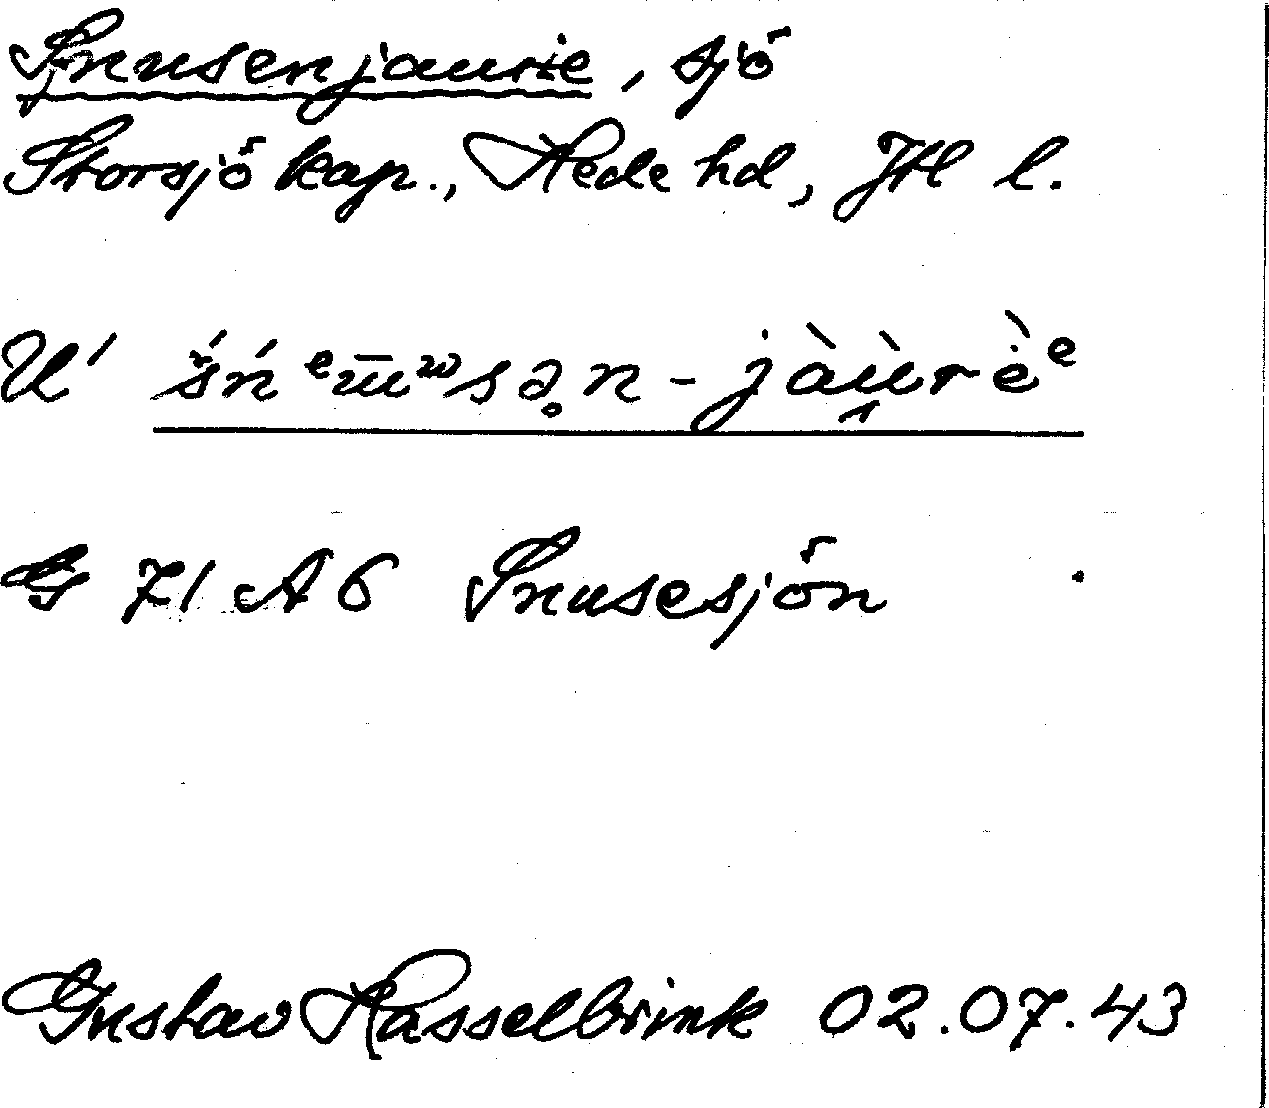 Snusenjaurie, sjö
Storsjö kap., Hede hd, Jtl l.
U' śń ᵉūʷsə̥n-jàùrèᵉ
G 71 A6 Snusesjön
Gustav Hasselbrink 02.07.43